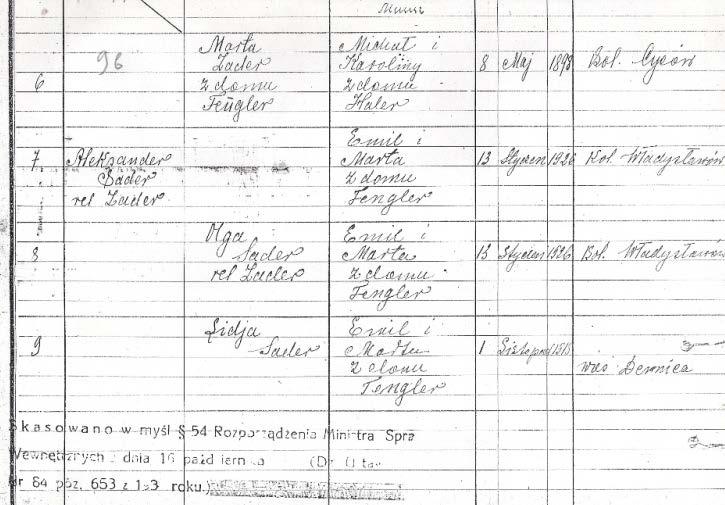 96
6 Marta Michał i 8 Maj 1898 Kol. Cyców
Zader Karoliny
z domu z domu
Fengler Haler
Emil i
7 Aleksander Marta 13 Styczeń 1926 Kol. Władysławów
Sader z domu
rel Zader Fengler
Olga Emil i
8 Sader Marta 13 Styczeń 1926 Kol. Władysławów
rel Zader z domu
Fengler
Lidja Emil i
9 Sader Marta 1 Listopad
z domu wieś Dernica
Fengler
Skasowano w myśl § 54 Rozporządzenia Ministra Spra
Wewnętrznych z dnia 16 października (Dz. Ustaw
Nr 84 poz. 653 z roku.)